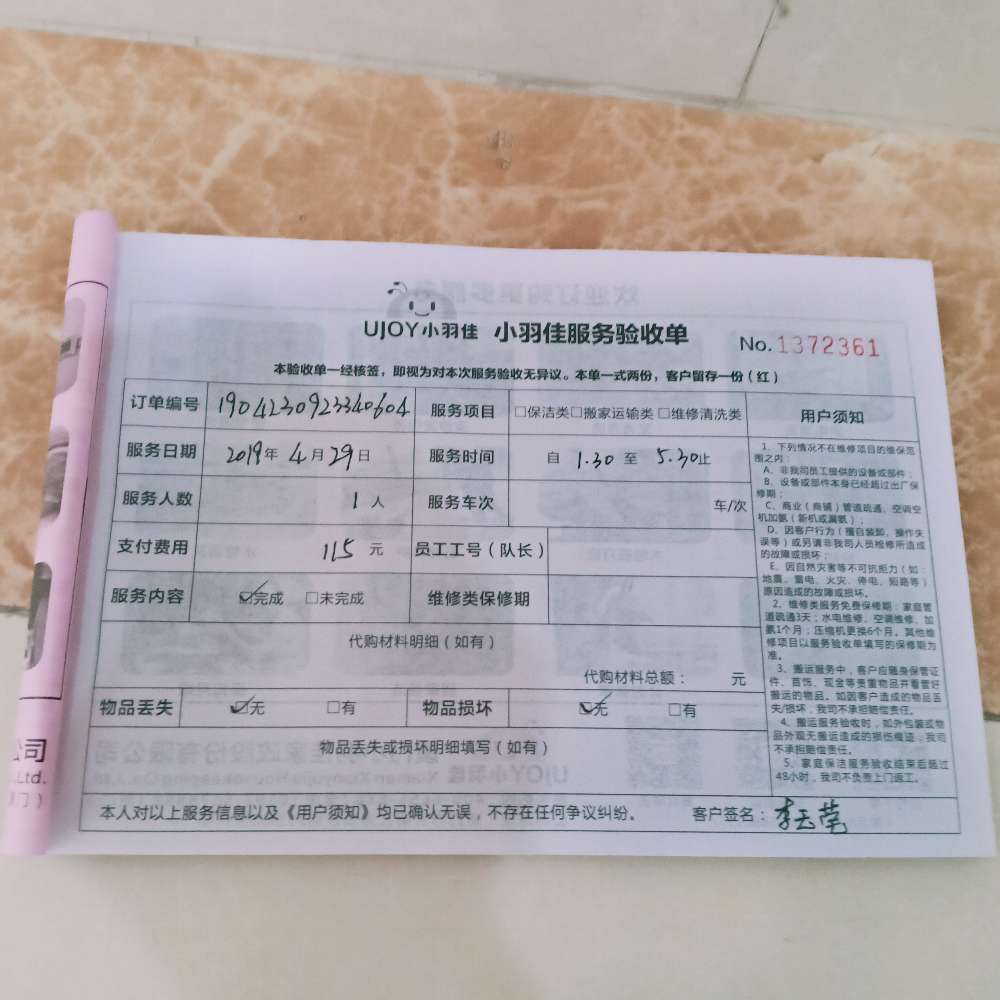 UJOY小羽佳 小羽佳服务验收单 No.1372361
本验收单一经核签，即视为对本次服务验收无异议。本单一式两份，客户留存一份（红）
订单编号 1904230923340604 服务项目 □保洁类□搬家运输类□维修清洗类 用户须知
服务日期 2019年4月29日 服务时间 自 1.30 至 5.30止
服务人数 1人 服务车次 车/次
支付费用 115元 员工工号（队长）
服务内容 ☑完成 □未完成 维修类保修期
代购材料明细（如有）
代购材料总额： 元
物品丢失 ☑无 □有 物品损坏 ☑无 □有
物品丢失或损坏明细填写（如有）
1、下列情况不在维修项目的维保范
围之内：
A、非我司员工提供的设备或部件；
B、设备或部件本身已经超过出厂保
修期；
C、商业（商铺）管道疏通，空调空
机加氨（新机或漏氨）；
D、因客户行为（擅自装卸、操作失
误等）或另请非我司人员检修所造成
的故障或损坏；
E、因自然灾害等不可抗拒力（如：
地震、雷电、火灾、停电、短路等）
原因造成的故障或损坏。
2、维修类服务免费保修期：家庭管
道疏通3天；水电维修、空调维修、加
氨1个月；压缩机更换6个月。其他维
修项目以服务验收单填写的保修期为
准。
3、搬运服务中，客户应随身保管证
件、首饰、现金等贵重物品并看管好
搬运的物品，如因客户造成的物品丢
失/损坏，我司不承担赔偿责任。
4、搬运服务验收时，如外包装或物
品外观无搬运造成的损伤痕迹，我司
不承担赔偿责任。
5、家庭保洁服务验收结束后超过
48小时，我司不负责上门返工。
本人对以上服务信息以及《用户须知》均已确认无误，不存在任何争议纠纷。 客户签名：李云莺
公司
Ltd.
门）